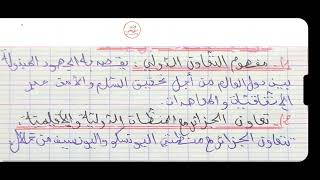 1)- مفهوم التعاون الدولي: يقصد به الجهود المبذولة
بين دول العالم من أجل تحقيق السلم والأمن عبر
الإتفاقيات والمعاهدات.
2)- تعاون الجزائر مع المنظمات الدولية والإقليمية:
تتعاون الجزائر مع منظمتي اليونسكو واليونسيف من خلال